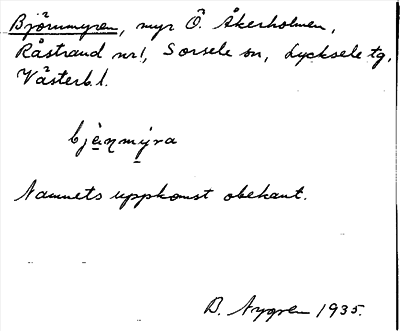 Björnmyren, myr Ö. Åkerholmen,
Råstrand nr 1, Sorsele sn, Lycksele tg,
Västerb. l.
Namnets uppkomst obekant.
B. Nygren 1935.